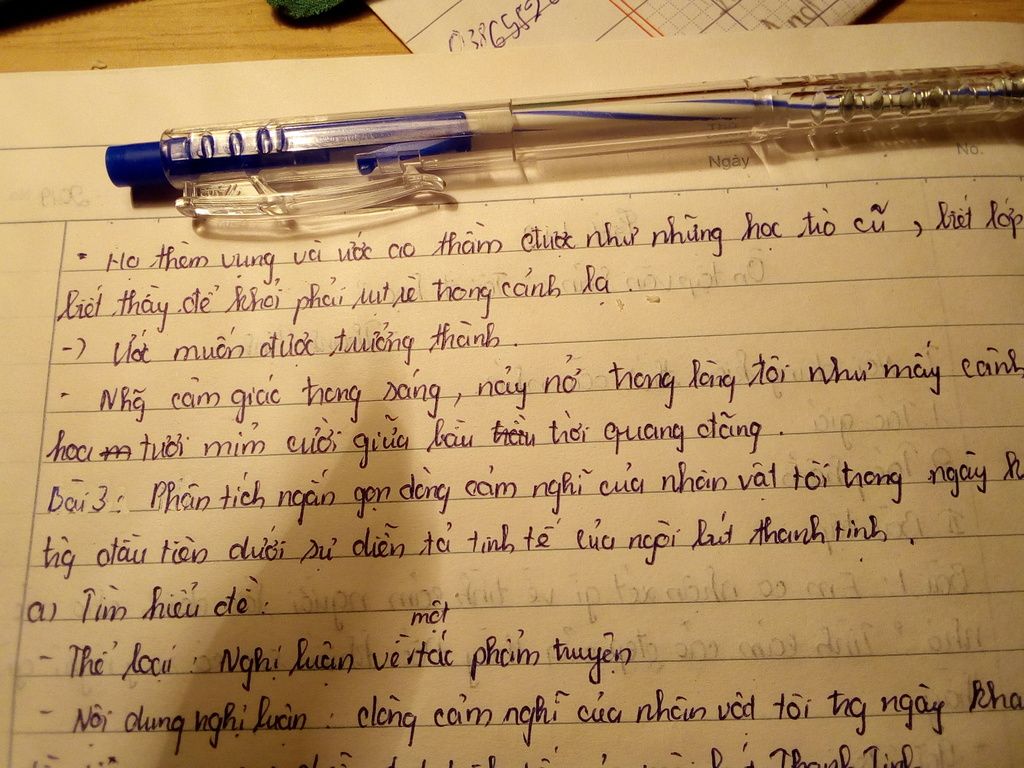 0386552
And
Ngày
No.
- Họ thèm vụng và ước ao thầm được như những học trò cũ, biết lớp
biết thầy để khỏi phải rụt rè trong cảnh lạ.
-) Ước muốn được trưởng thành.
- Nhg cảm giác trong sáng, nảy nở trong lòng tôi như mấy cành
hoa tươi mỉm cười giữa bầu trời quang đãng.
Bài 3: Phân tích ngắn gọn dòng cảm nghĩ của nhân vật tôi trong ngày k
trg đầu tiên dưới sự diễn tả tinh tế của ngòi bút thanh tịnh.
a) Tìm hiểu đề:
- Thể loại: Nghị luận về một tác phẩm truyện
- Nội dung nghị luận: dòng cảm nghĩ của nhân vật tôi trg ngày kha
Thanh Tịnh